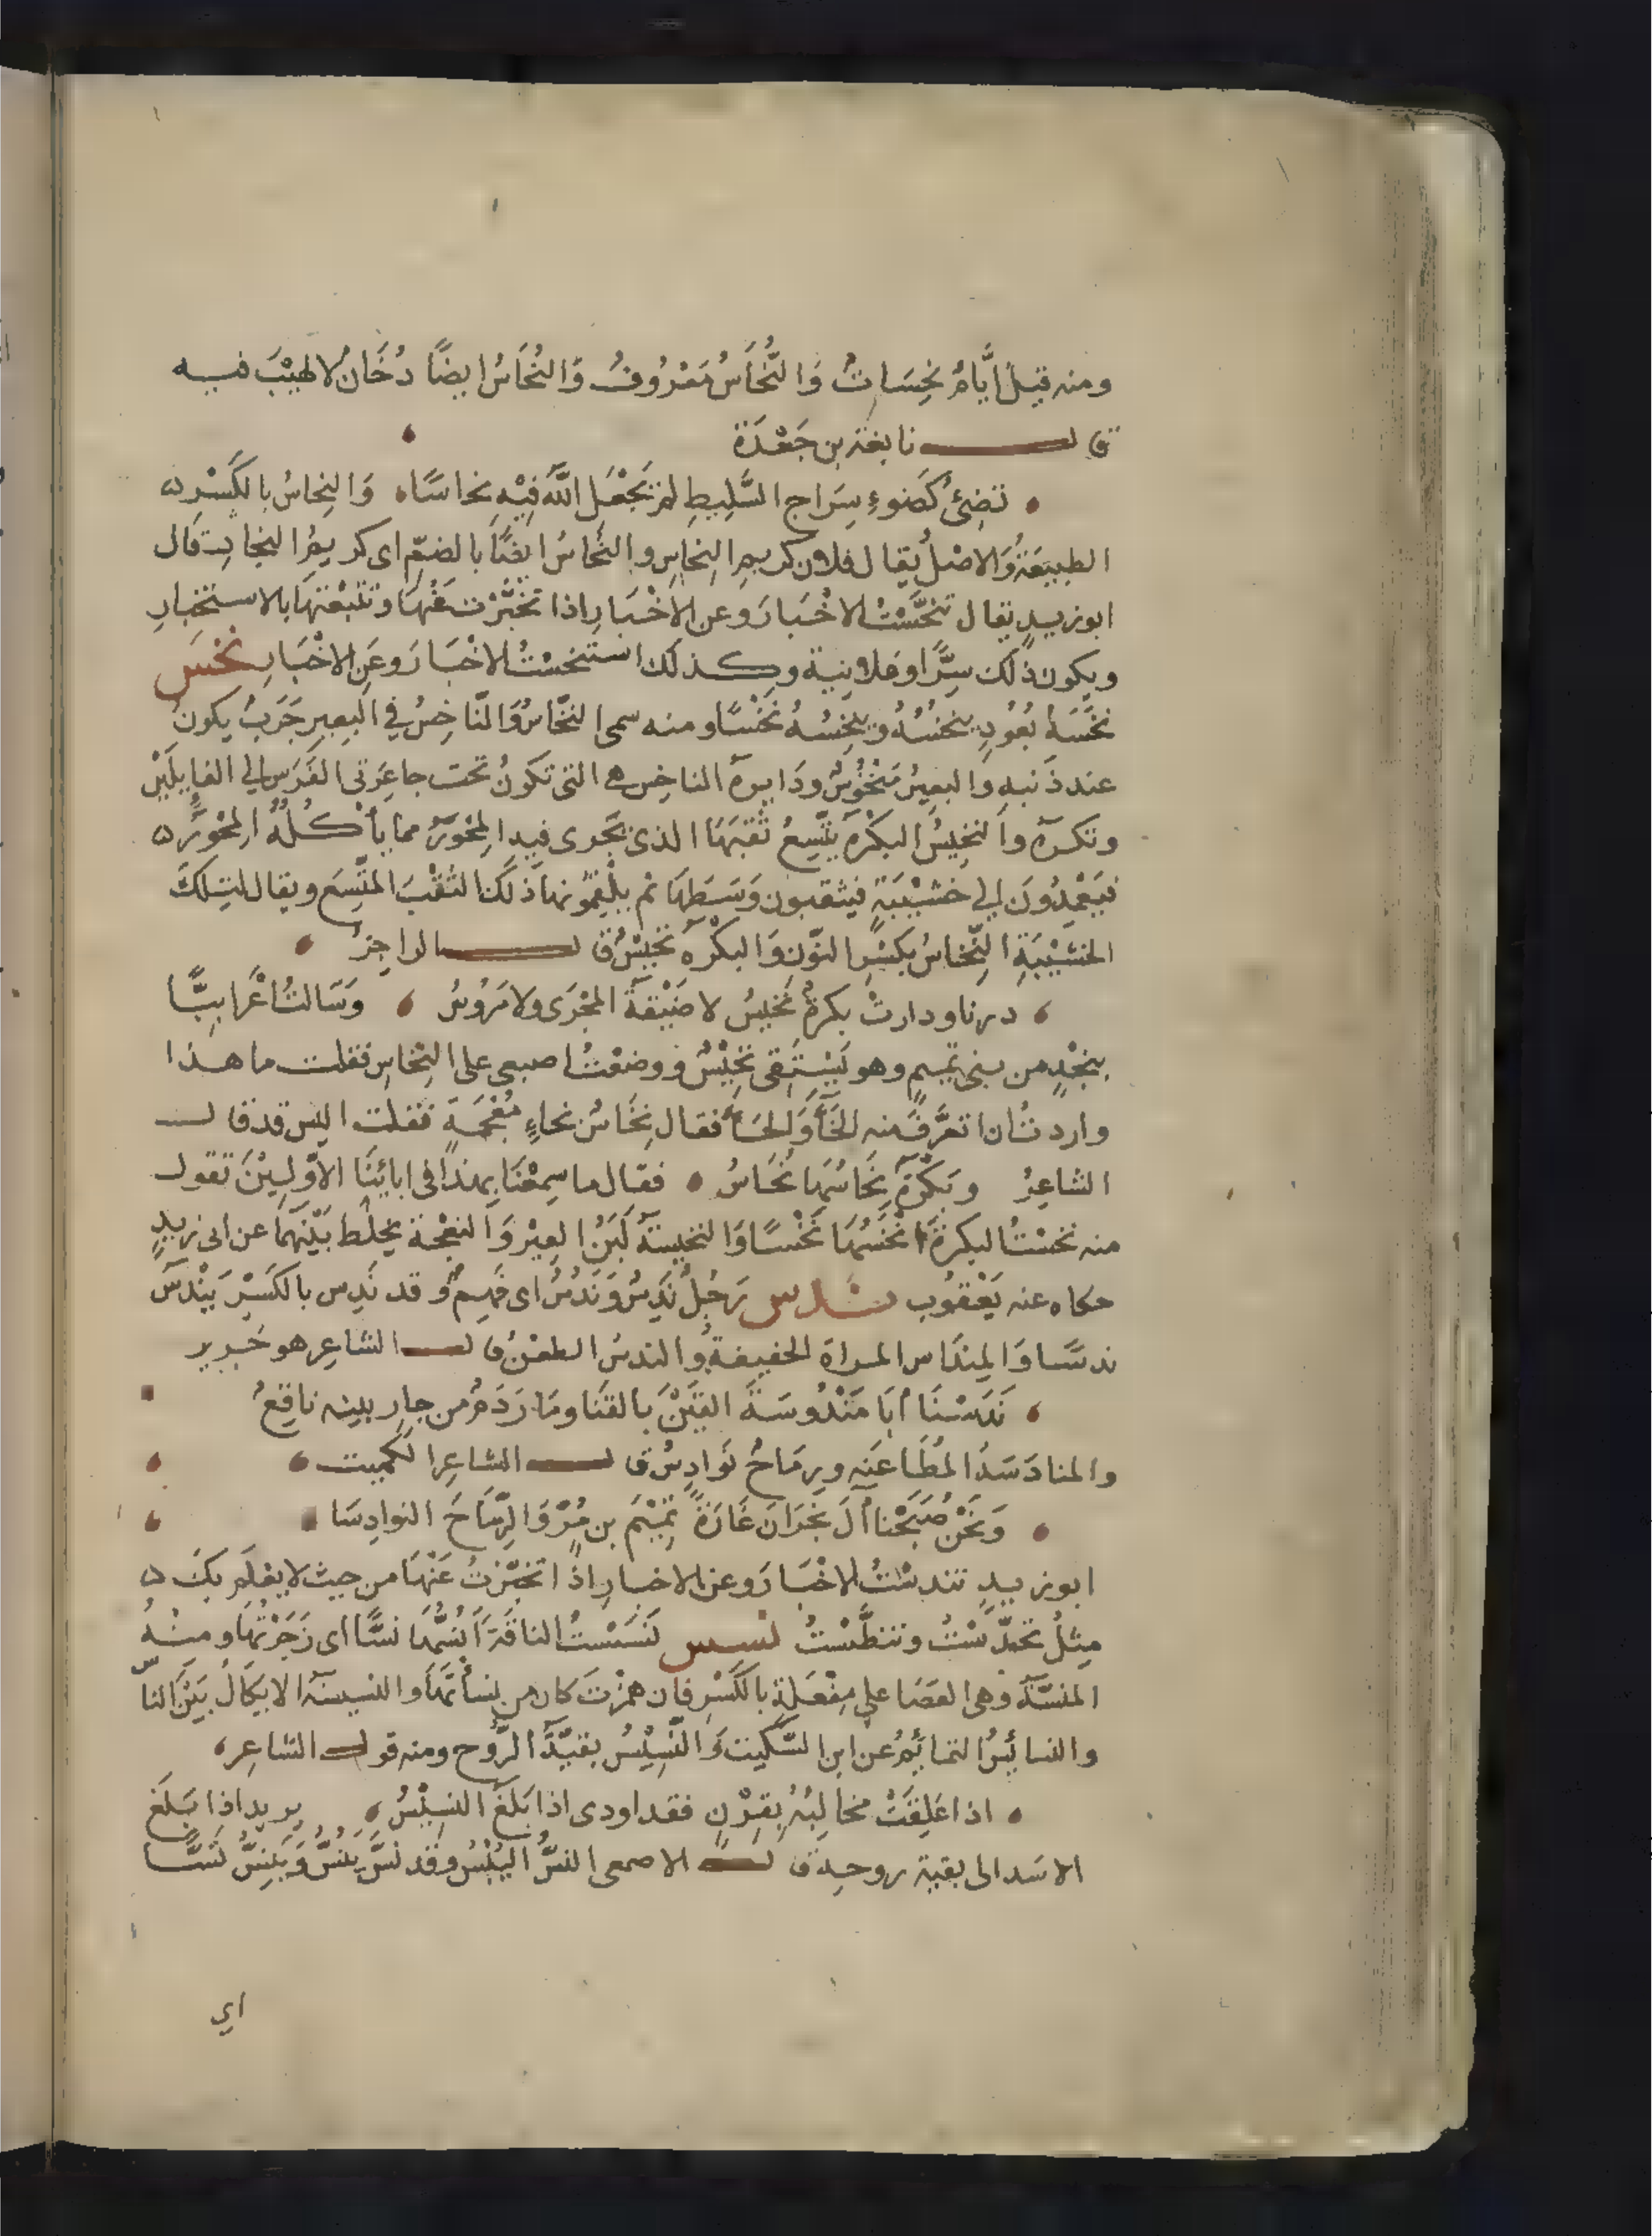 ومنه قيل أَيَّامٌ نَحِسَاتٌ وَالنُّحَاسُ مَعْرُوفٌ وَالنُّحَاسُ ايضًا دُخَانٌ لا لهيْبَ فيه
قال نابغة بن جَعْدَة
تضِئُ كَضَوءِ سِرَاجِ السَّلِيطِ لمْ يَجْعَلِ اللَّهُ فِيْهِ نحاسَا وَالنِحاسُ بالكَسْرِ
الطبيعَةُ وَالاصْلُ يقال فلان كريم النِحاسِ والنُحَاسُ ايضًا بالضمّ اي كريمُ النِجارِ قال
ابوزيدٍ يقال تَنَحَّسْتُ الاخْبَارَ وعن الاخْبَارِ اذا تَخَبَّرْتَ عَنْهَا وتتبعْتهَا بالاستخبارِ
ويكون ذلك سِرًّا وعلانيةً وكذلك استنحسْتُ الاخْبَارَ وعَنِ الاخْبَارِ نخس
نَخَسَهُ بعُودٍ ينخُسُهُ وينخِسُهُ نَخْسًا ومنه سمى النخَّاسُ وَالنَّاخِسُ في البعِيرِ جَرَبٌ يكونُ
عند ذَنَبهِ والبعِيرُ مَنْخُوْسٌ ودَايرة الناخِس هي التي تكونُ تحت جاعِرَتى الفَرَس الي الفايلَيْنِ
وتكره والنَخِيْسُ البكْرة يتَّسِعُ ثقبَهَا الذى يَجْرى فيه المِحْوَرُ مما يأكُلُهُ المِحْوَرُ
فيَعْمِدُونَ الي خشيْبَةٍ فيثقبون وَسَطهَا ثم يلقِمُونها ذلك الثقْبَ المتَّسِعَ ويقال لتِلكَ
الخشيْبَةِ النِّخاسُ بكَسْرِ النّون وَالبكْرة نَخِيْسٌ قال الراجزُ
درنا ودارتْ بكرةٌ نَخِيْسُ لا ضَيْقةُ المَجْرَى ولا مَرُوسُ وَسَالتُ اعْرَابيًّا
بنجْدٍ من بنى تميم وهو يَسْتَقى نَخِيْسٌ ووضعْتُ اصبعى على النِخاسِ فقلت ما هذا
واردتُ ان اتعرَّفَ منه الخَآ وَالحَآ فقال نِخَاسٌ بخاءٍ مُعْجَمَةٍ فقلت اليس قد قال
الشاعِرُ وبَكْرَةٍ نِحَاسُهَا نُحَاسُ فقال ما سِمعْنَا بهذا فى ابائِنَا الاوّلِيْنَ تقول
منه نخسْتُ البكرة انْخَسُهَا نَخْسًا وَالنخيسَةُ لَبَنُ العِيْرِ وَالنعْجَة يخلَط بَيْنَهُمَا عن ابى زيدٍ
حكاه عنه يَعْقُوب ندس رَجُلٌ نَدِسٌ وَنَدُسٌ اى فَهِمٌ وقد نَدِس بالكَسْرِ يَنْدَسُ
ندسًا وَالمِندَاس المراة الخفيفةُ والندسُ الطعْنُ قال الشاعِر هو جَرير
نَدَسْنَا أبَا مَنْدُوسَةَ القَيْنَ بالقنَا وَمَارَ دَمٌ من جارِ بيبه ناقِعُ
والمنادَسَةُ المُطَاعَنه ورِمَاحٌ نَوَادِسُ قال الشاعِر الكميت
وَنَحْنُ صَبَحْنا آلَ نجْرَان غَارَةً تميْمَ بن مُرٍّ وَالرِّمَاحَ النوادِسَا
ابوزيدٍ تندسْتُ الاخْبَارَ وعن الاخبارِ اذا تخبّرْتُ عَنْهَا من حيث لا يعْلَم بكَ
مِثلُ تحدَّسْتُ وتنطَّسْتُ نسس نَسَسْتُ الناقَةَ أَنُسُّهَا نسًّا اى زَجَرْتُهَا ومنهُ
المنسَّةُ وهى العصَا على مِفْعَلةٍ بالكَسْرِ فان همزْتَ كان من نسأتُهَا والنسيسَة الايكَالُ بَيْنَ النّاس
والنسائسُ النمائِمُ عن ابن السّكيت وَالنَّسِيْسُ بقيَّةُ الرُّوح ومنه قول الشاعِر
اذا عَلِقَتْ مخالِبُهُ بقِرْنٍ فقد اودى اذا بَلَغَ النسِيْسُ يريد اذا بَلَغَ
الاسَد الى بقية روحِه قال الاصمعى النسُّ اليُبْسُ وقد نسَّ يَنُسُّ وَيَنِسُّ نَسًّا
اي